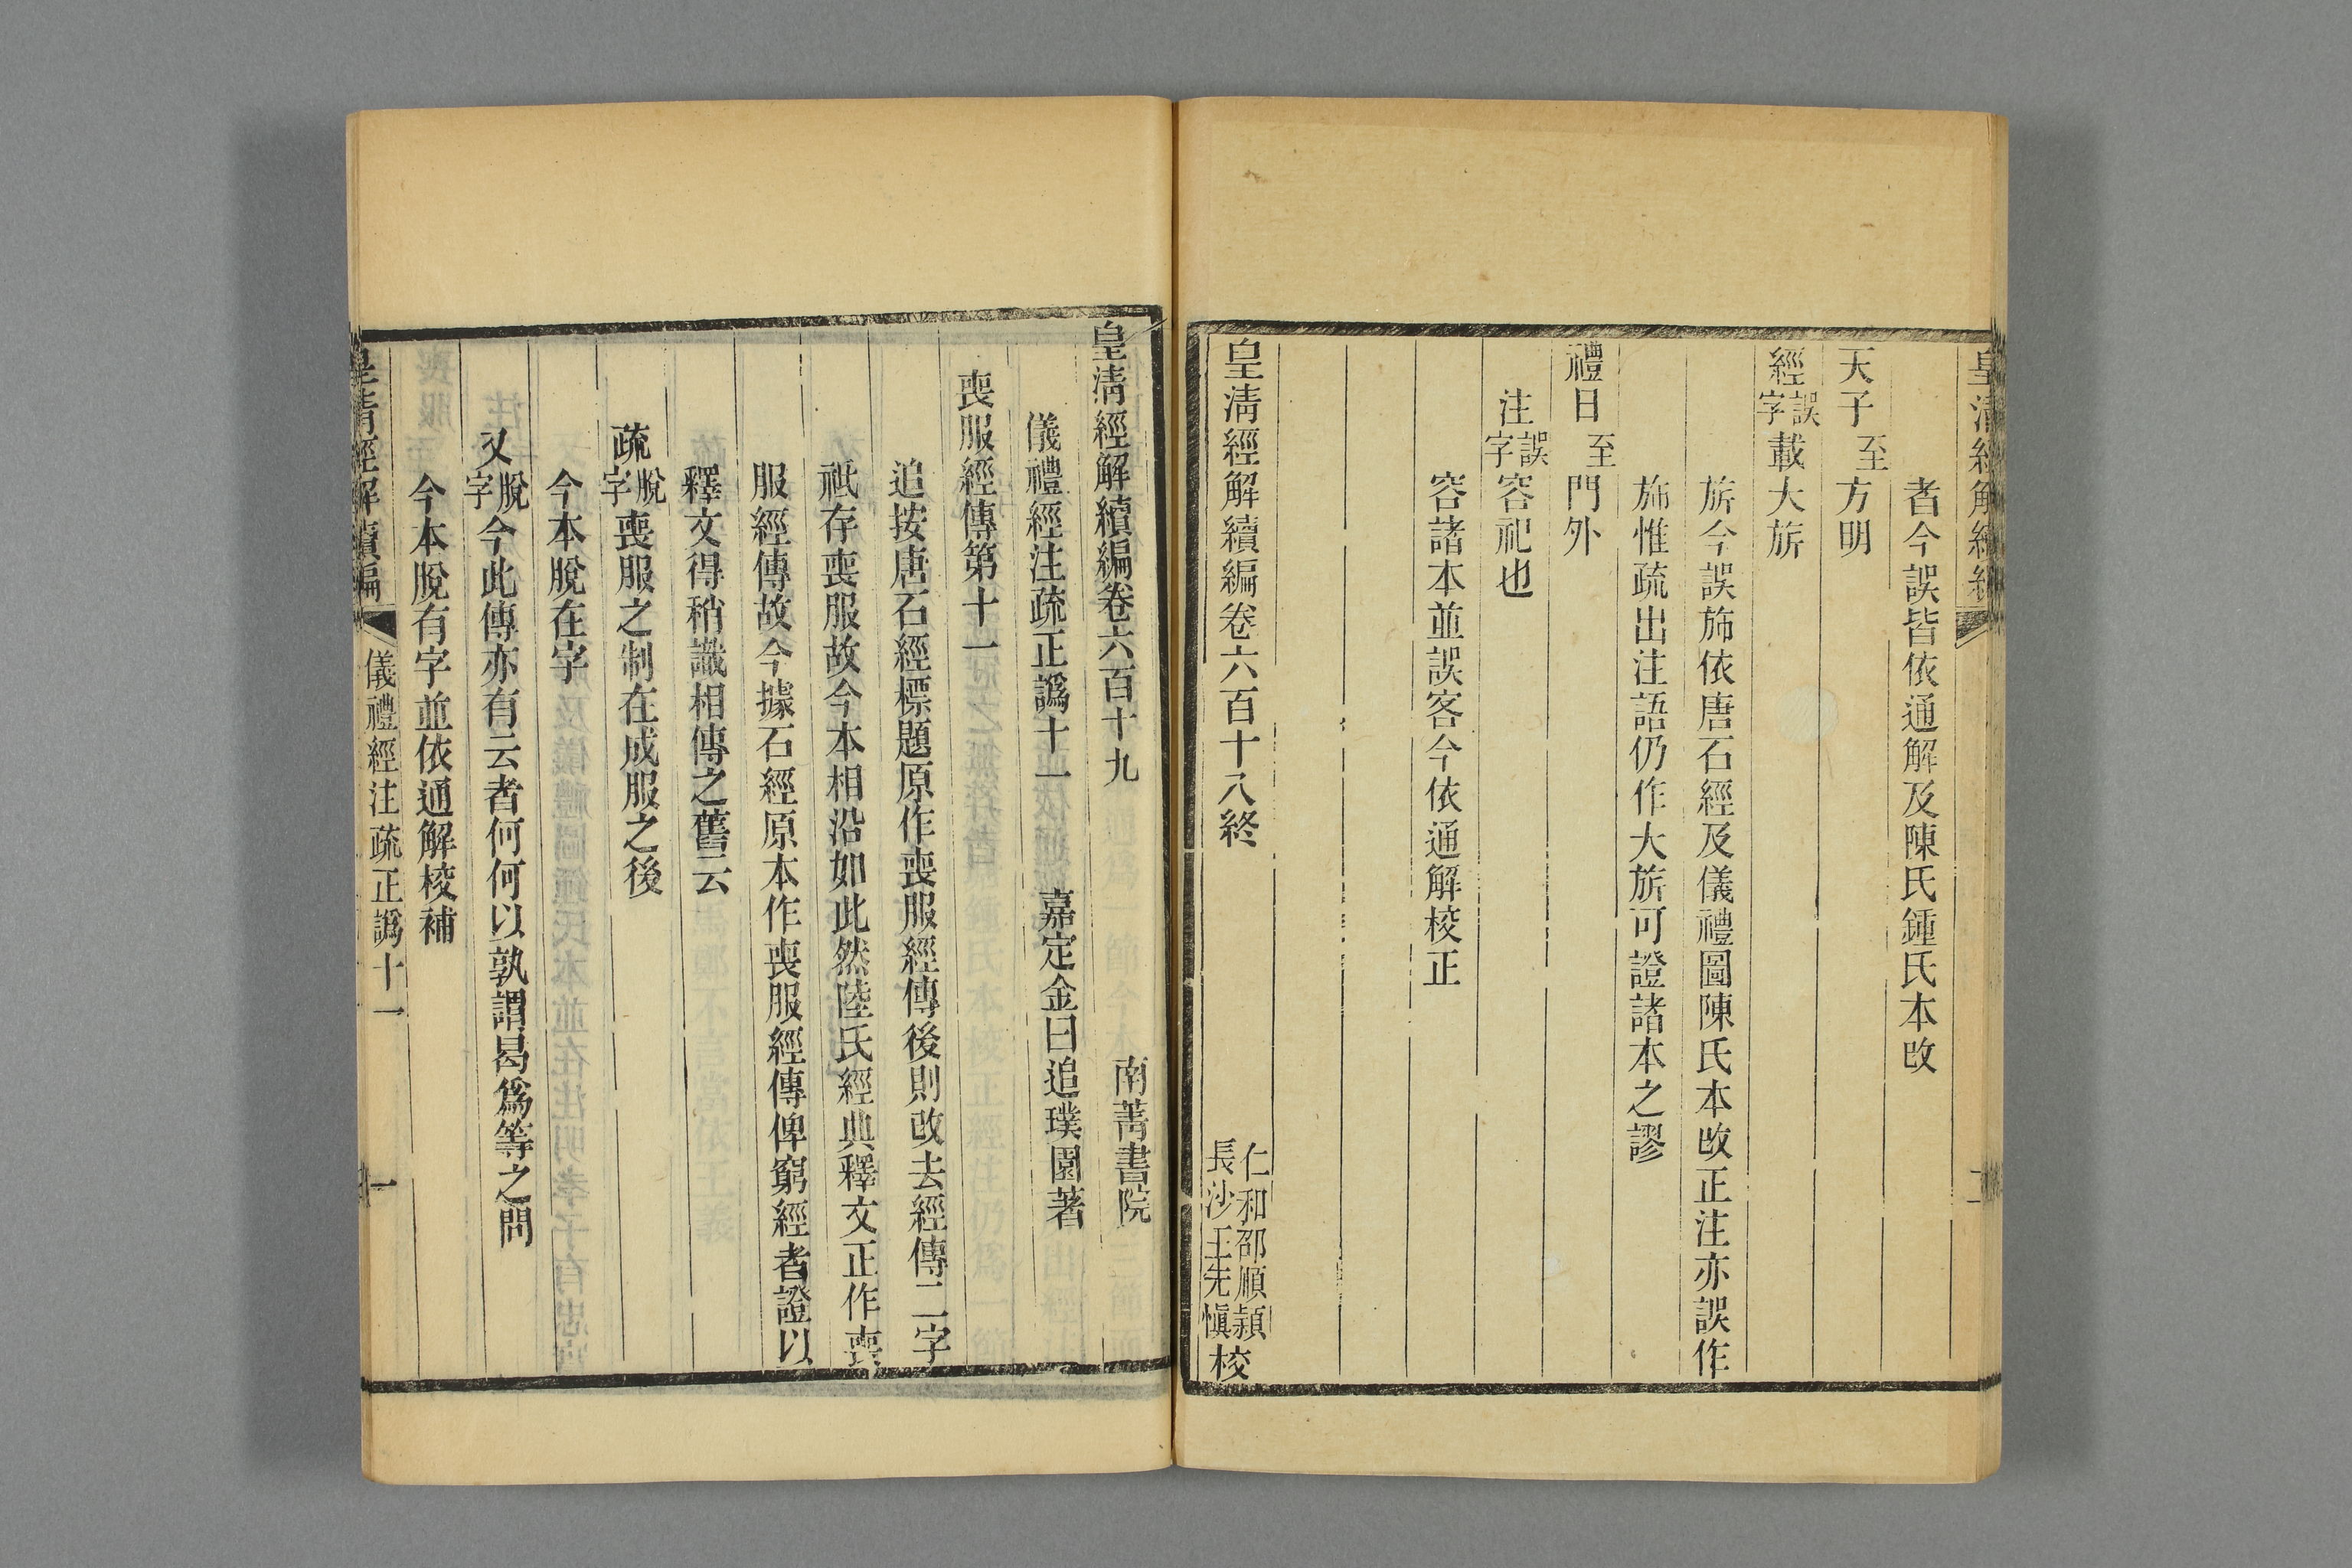 者今誤皆依通解及陳氏鍾氏本改
天子至方明
經誤字載大旂
旂今誤斾依唐石經及儀禮圖陳氏本改正注亦誤作
斾惟疏出注語仍作大旂可證諸本之謬
禮日至門外
注誤字容祀也
容諸本並誤客今依通解校正
皇清經解續編卷六百十八終
仁和邵順穎
長沙王先愼校
皇清經解續編卷六百十九
南菁書院
儀禮經注疏正譌十一
嘉定金曰追璞園著
喪服經傳第十一
追按唐石經標題原作喪服經傳後則改去經傳二字
祇存喪服故今本相沿如此然陸氏經典釋文正作喪
服經傳故今據石經原本作喪服經傳俾窮經者證以
釋文得稍識相傳之舊云
疏脫字喪服之制在成服之後
今本脫在字
又脫字今此傳亦有云者何何以孰謂曷爲等之問
今本脫有字並依通解校補
皇清經解續編
儀禮經注疏正譌十一
一